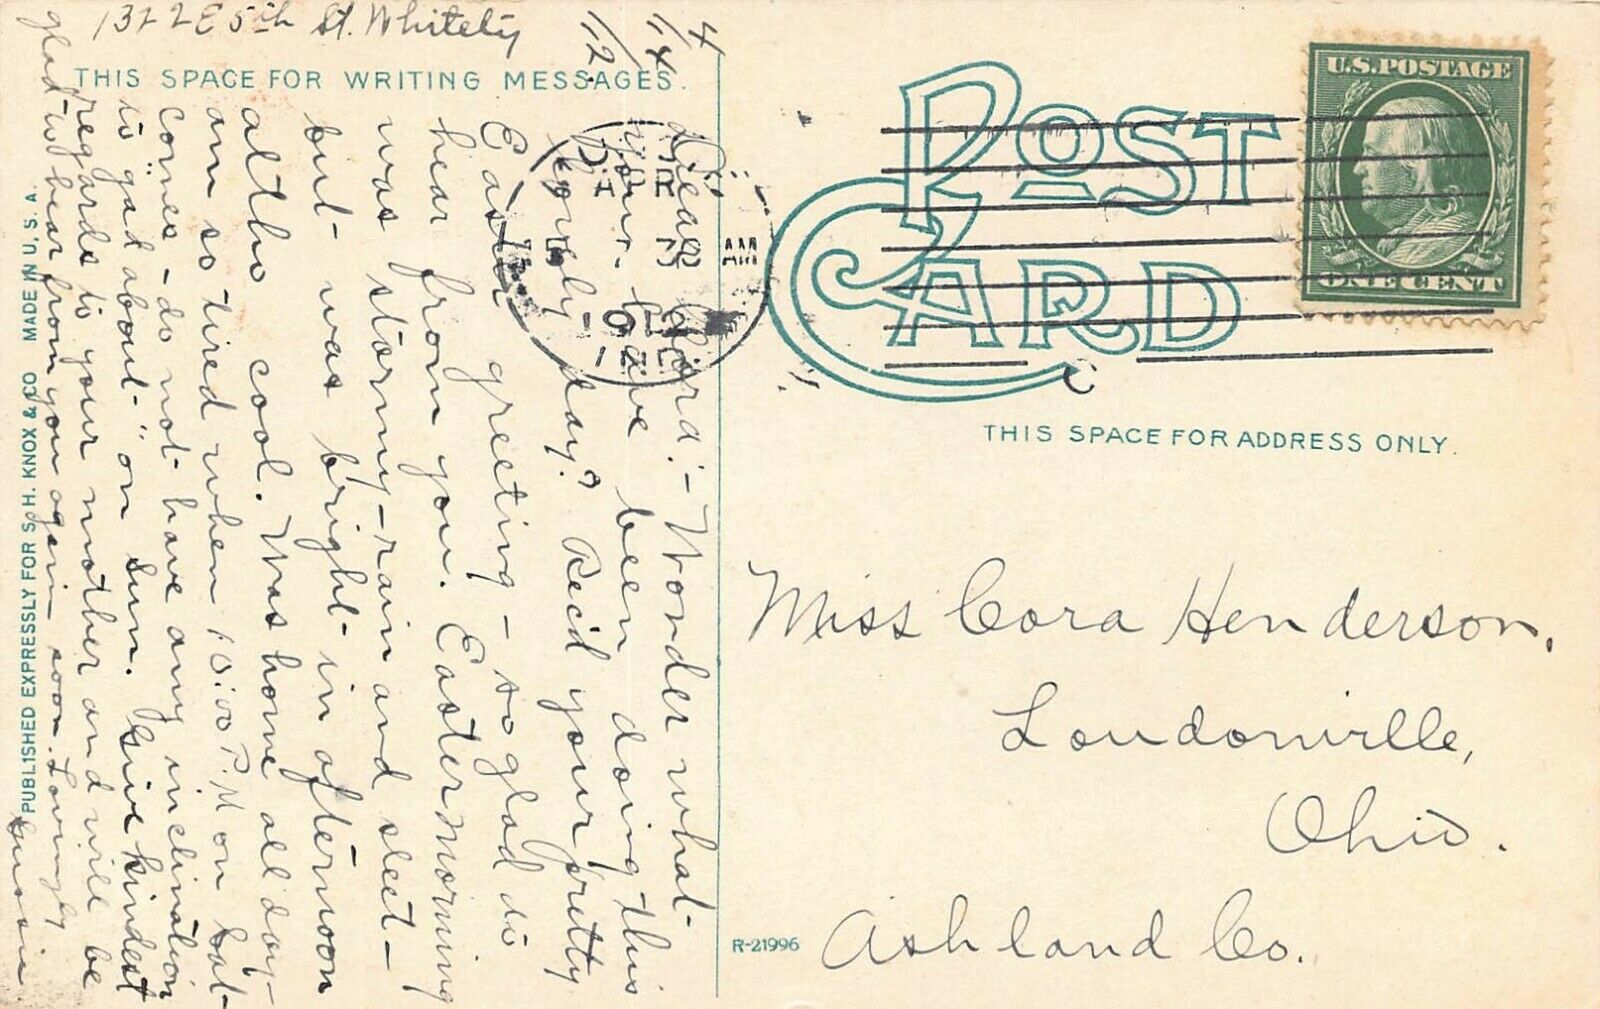 1322 E 5th St. Whitely
4/14/12.
THIS SPACE FOR WRITING MESSAGES.
Dear Cora:- Wonder what
you have been doing this
lovely day? Rec'd your pretty
Easter greeting - so glad to
hear from you. Easter Morning
was stormy - rain and sleet -
but was bright in afternoon
altho cool. Was home all day -
am so tired when 10:00 P.M on Sat-
comes - do not have any inclination
to "gad about" on Sun. Give kindest
regards to your mother and will be
glad to hear from you again soon. Lovingly
PUBLISHED EXPRESSLY FOR S.H. KNOX & CO MADE IN U.S.A.
POST CARD
U.S. POSTAGE
ONE CENT
THIS SPACE FOR ADDRESS ONLY.
Miss Cora Henderson,
Loudonville,
Ohio.
Ashland Co.
R-21996